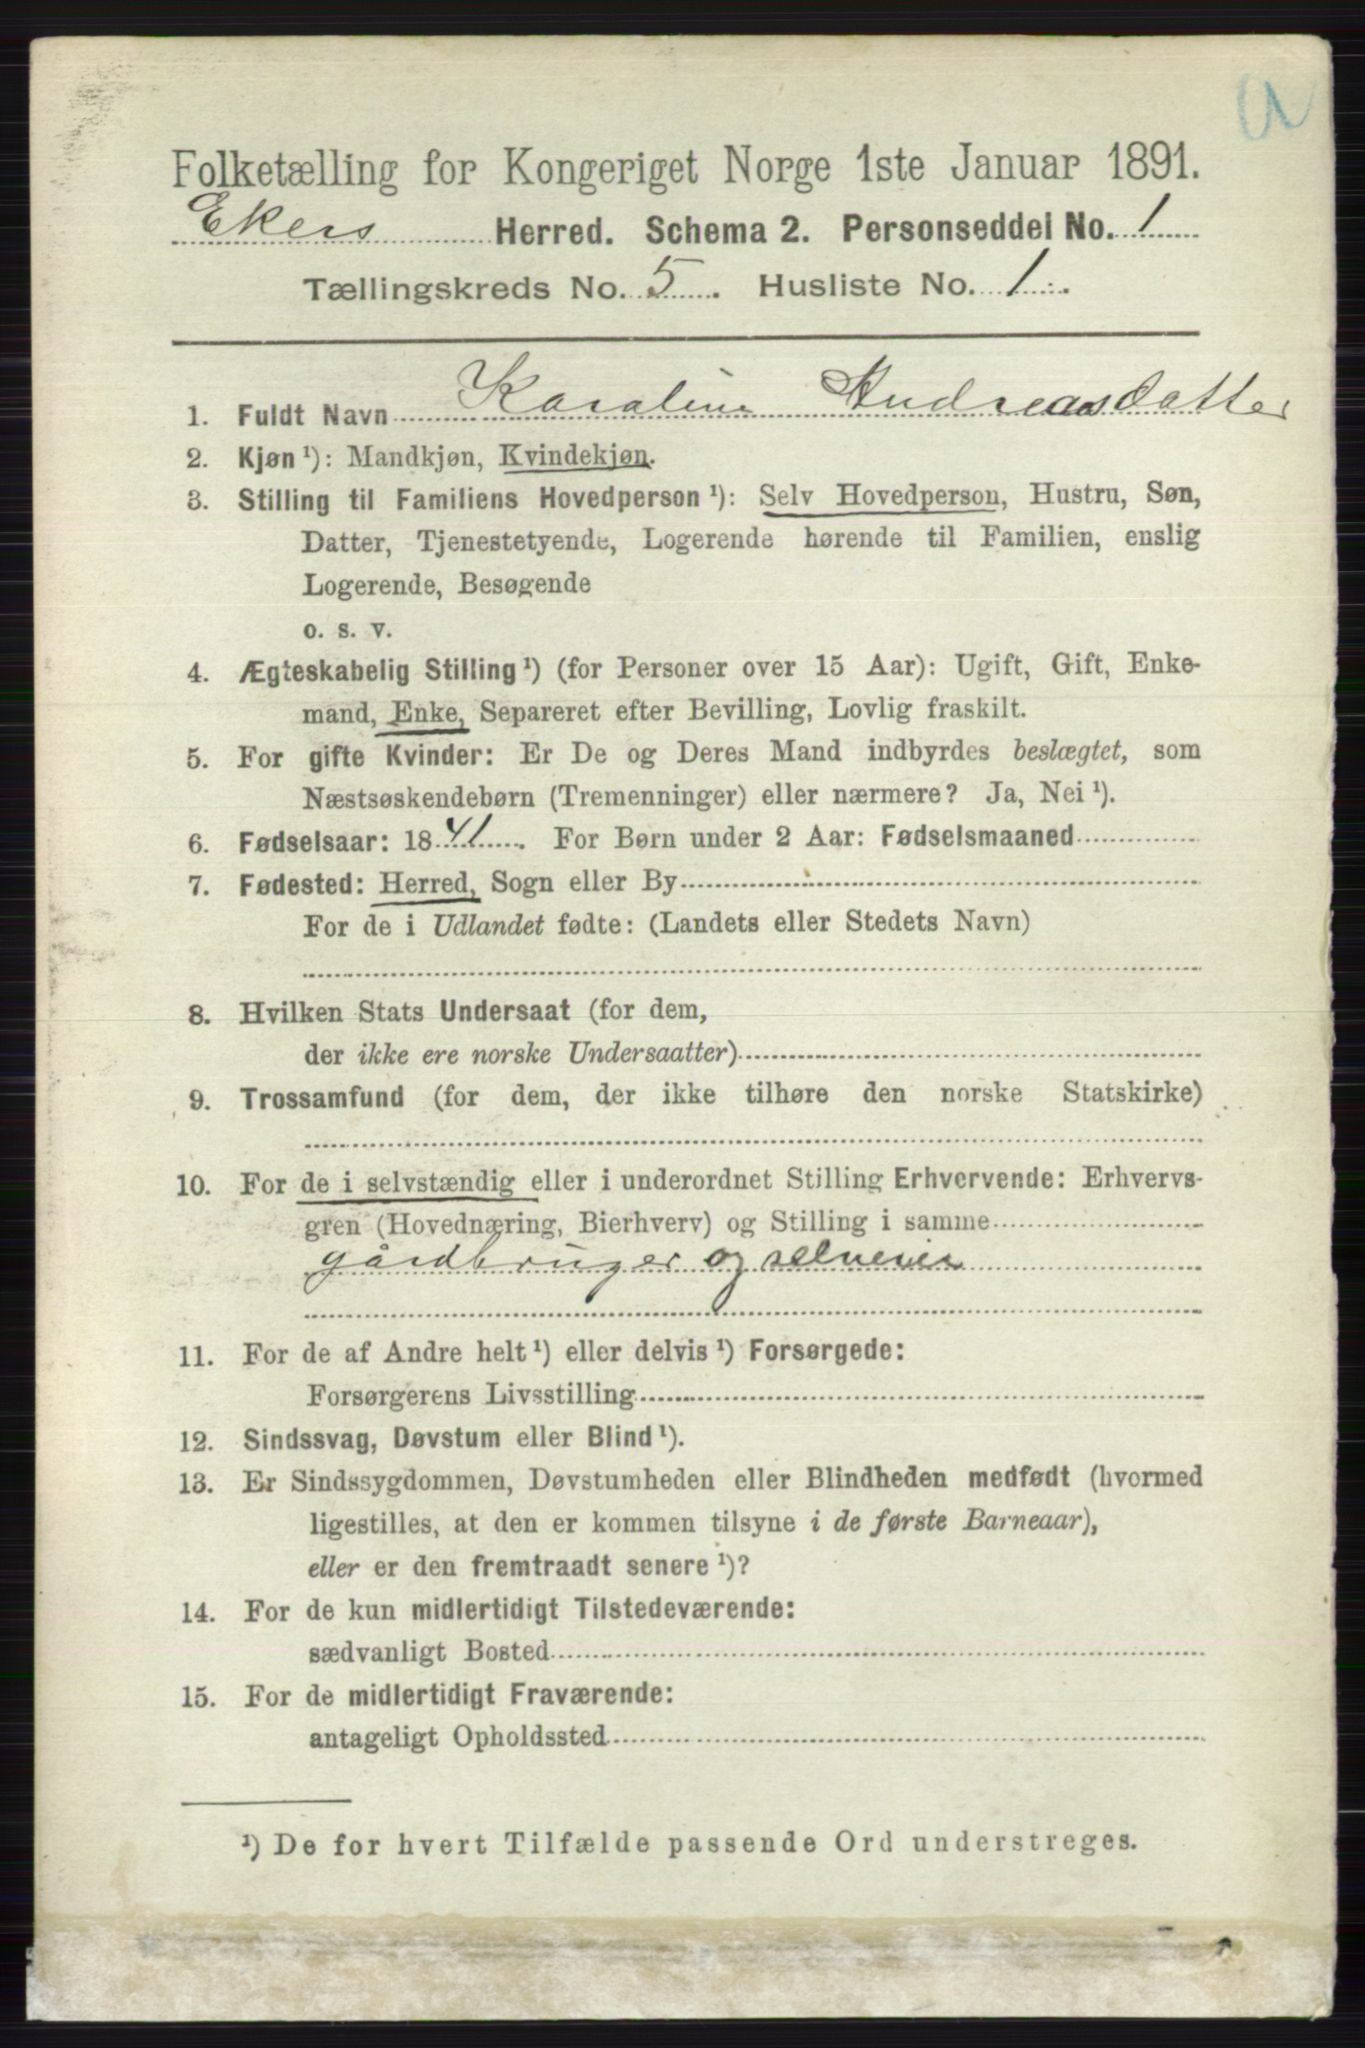 a
Folketælling for Kongeriget Norge 1ste Januar 1891.
Ekers Herred. Schema 2. Personseddel No. 1
Tællingskreds No. 5. Husliste No. 1.
1. Fuldt Navn Karoline Andreasdatter
2. Kjøn ¹): Mandkjøn, Kvindekjøn.
3. Stilling til Familiens Hovedperson ¹): Selv Hovedperson, Hustru, Søn,
Datter, Tjenestetyende, Logerende hørende til Familien, enslig
Logerende, Besøgende
o. s. v.
4. Ægteskabelig Stilling ¹) (for Personer over 15 Aar): Ugift, Gift, Enke-
mand, Enke, Separeret efter Bevilling, Lovlig fraskilt.
5. For gifte Kvinder: Er De og Deres Mand indbyrdes beslægtet, som
Næstsøskendebørn (Tremenninger) eller nærmere? Ja, Nei ¹).
6. Fødselsaar: 1841. For Børn under 2 Aar: Fødselsmaaned
7. Fødested: Herred, Sogn eller By
For de i Udlandet fødte: (Landets eller Stedets Navn)
8. Hvilken Stats Undersaat (for dem,
der ikke ere norske Undersaatter)
9. Trossamfund (for dem, der ikke tilhøre den norske Statskirke)
10. For de i selvstændig eller i underordnet Stilling Erhvervende: Erhvervs-
gren (Hovednæring, Bierhverv) og Stilling i samme
gårdbruger og selveier
11. For de af Andre helt ¹) eller delvis ¹) Forsørgede:
Forsørgerens Livsstilling
12. Sindssvag, Døvstum eller Blind ¹).
13. Er Sindssygdommen, Døvstumheden eller Blindheden medfødt (hvormed
ligestilles, at den er kommen tilsyne i de første Barneaar),
eller er den fremtraadt senere ¹)?
14. For de kun midlertidigt Tilstedeværende:
sædvanligt Bosted
15. For de midlertidigt Fraværende:
antageligt Opholdssted
¹) De for hvert Tilfælde passende Ord understreges.